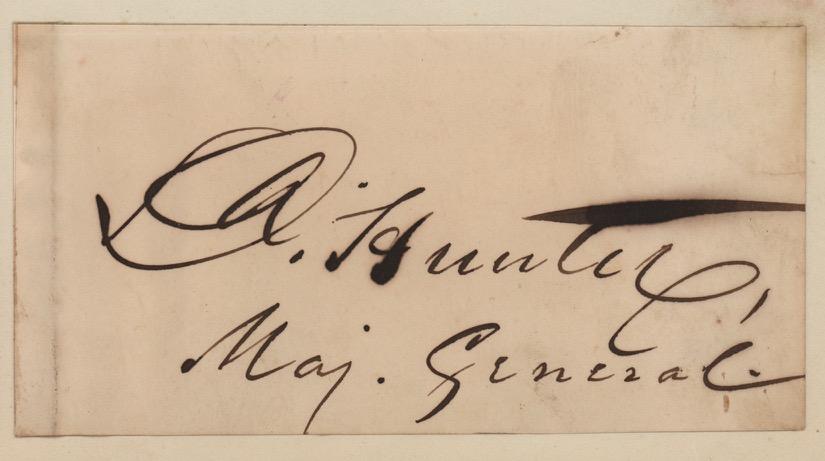 D. Hunter,
Maj. General.